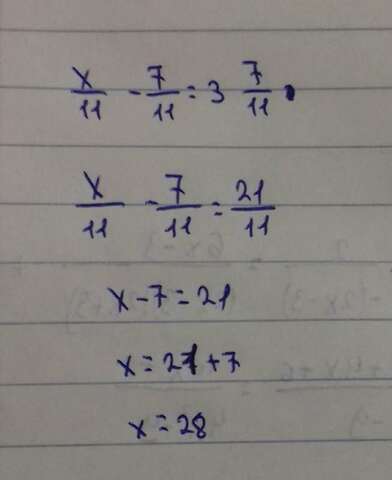 x/11 - 7/11 = 3 7/11.
x/11 - 7/11 = 21/11
x - 7 = 21
x = 21 + 7
x = 28